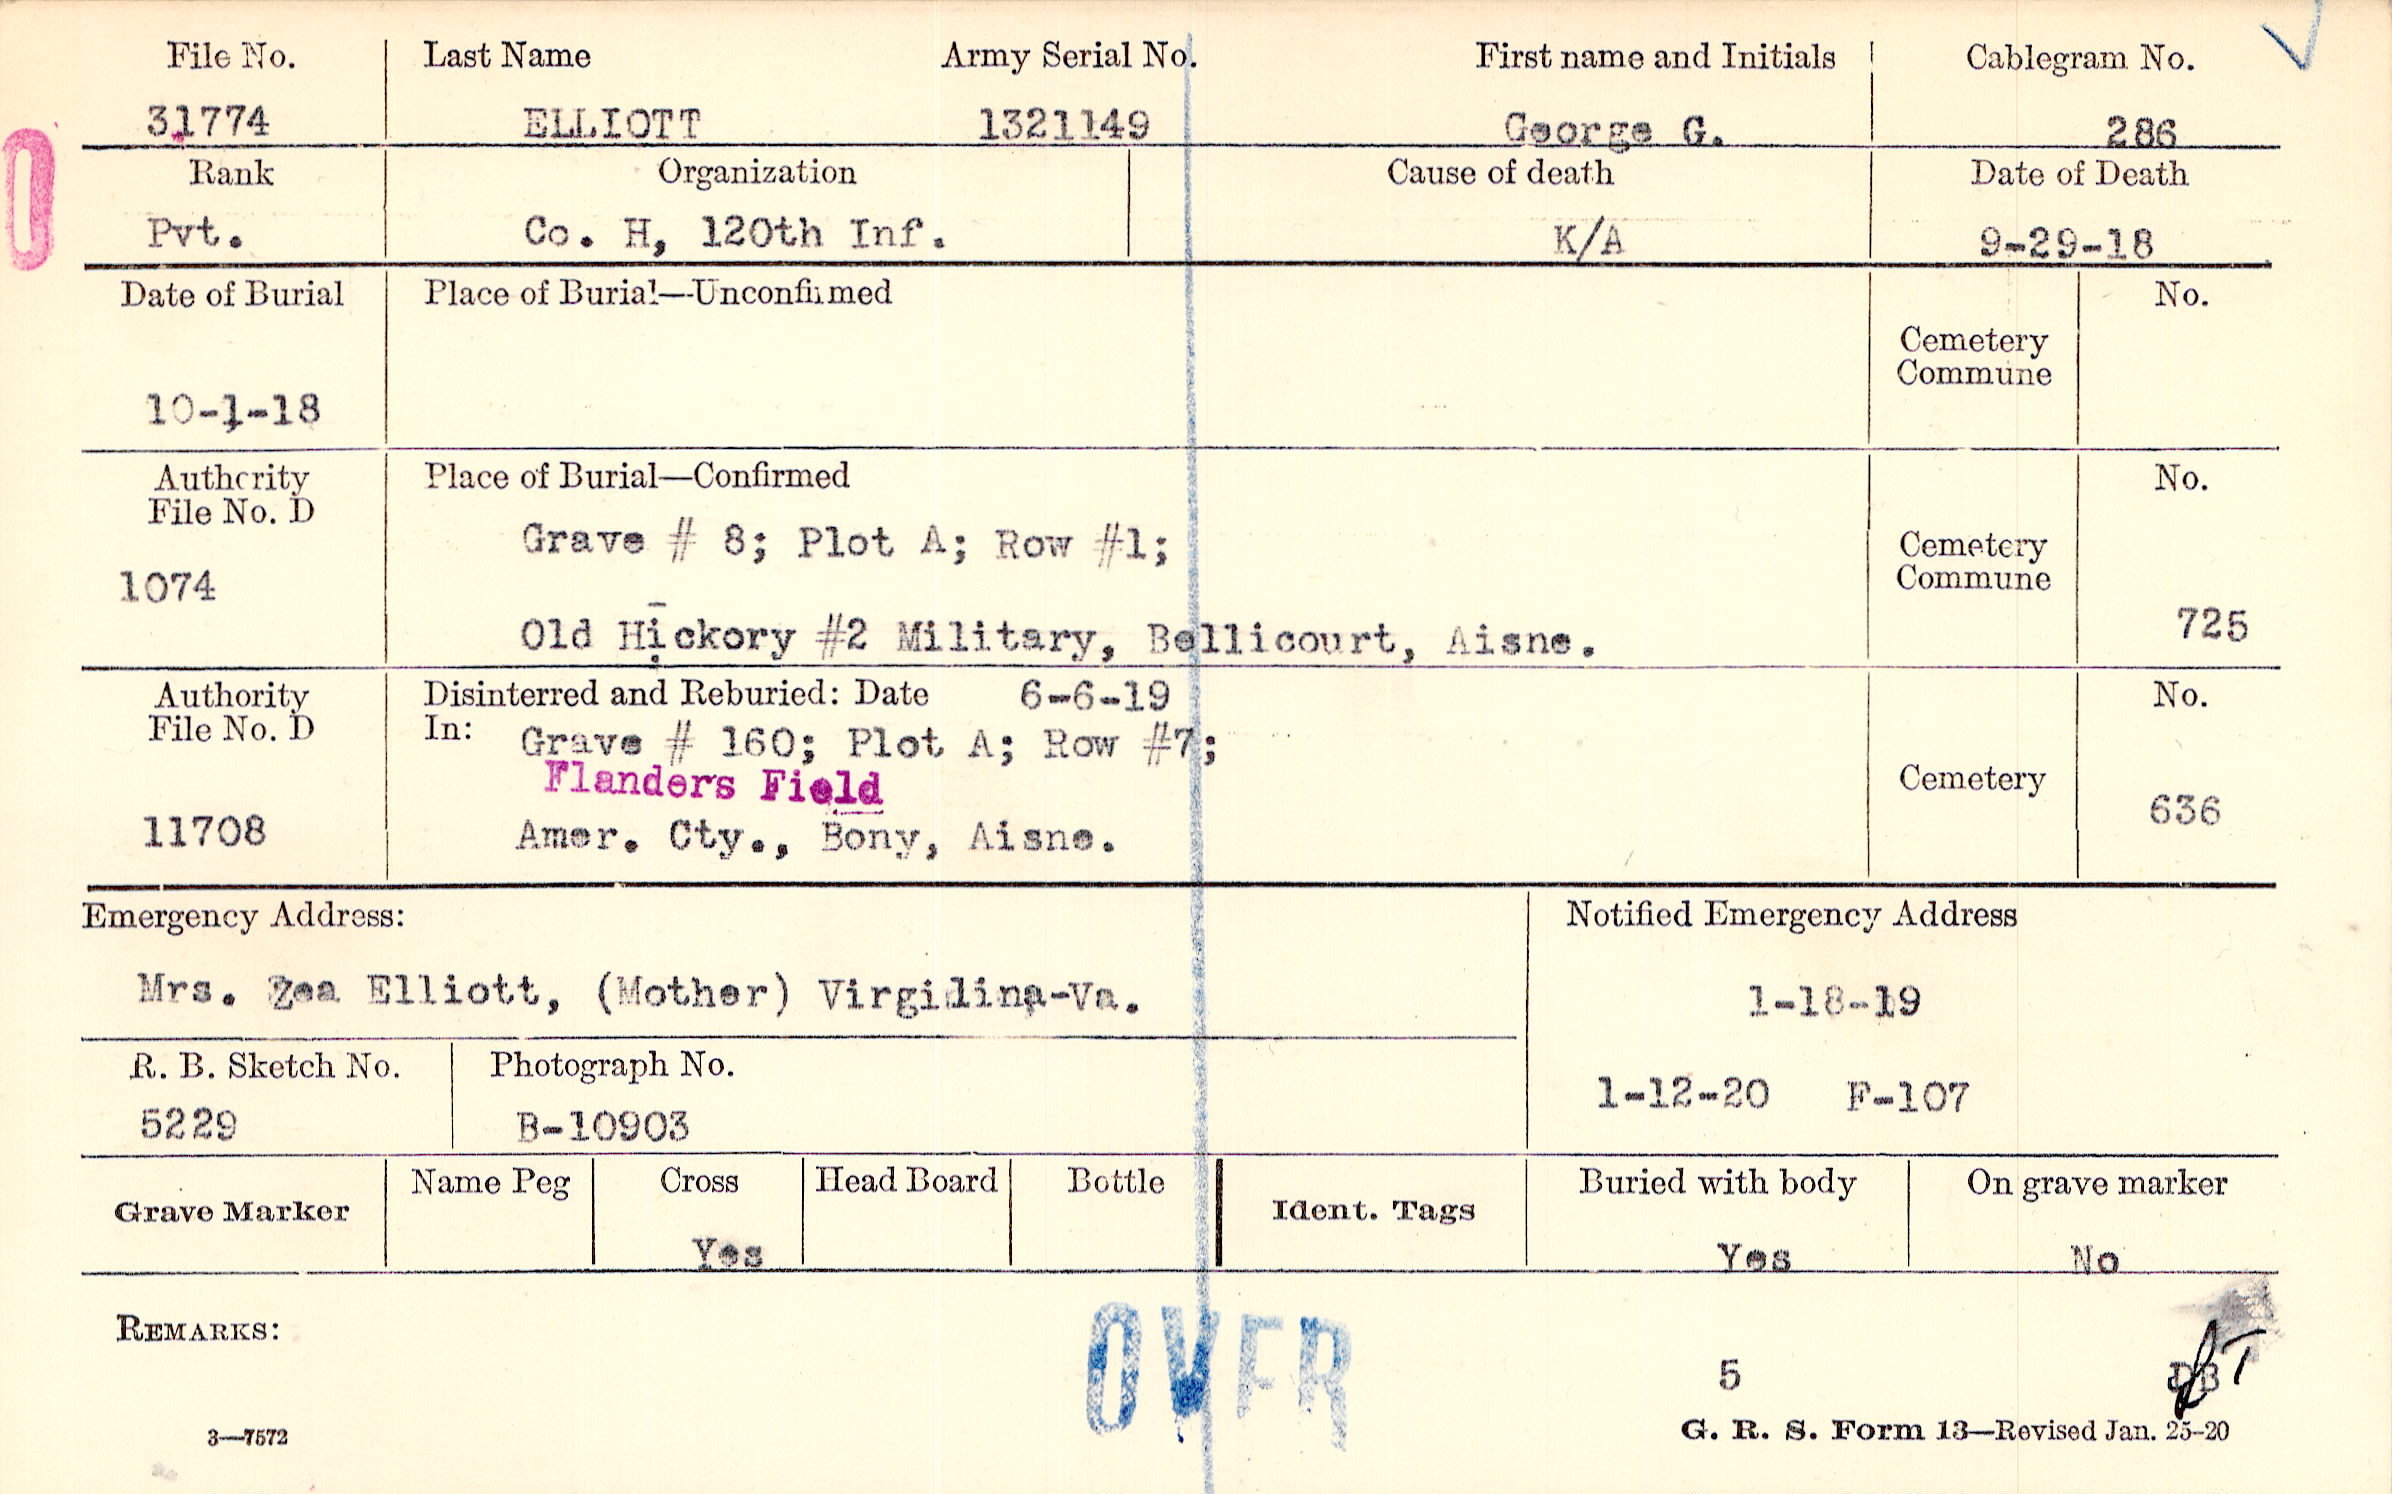 File No. Last Name Army Serial No. First name and Initials Cablegram No.
31774 ELLIOTT 1321149 George G. 286
Rank Organization Cause of death Date of Death
Pvt. Co. H, 120th Inf. K/A 9-29-18
Date of Burial Place of Burial—Unconfirmed No.
Cemetery
Commune
10-1-18
Authority Place of Burial—Confirmed No.
File No. D
Grave # 8; Plot A; Row #1;
Cemetery
Commune
1074
Old Hickory #2 Military, Bellicourt, Aisne. 725
Authority Disinterred and Reburied: Date 6-6-19 No.
File No. D In: Grave # 160; Plot A; Row #7;
Flanders Field
Cemetery
11708 Amer. Cty., Bony, Aisne. 636
Emergency Address: Notified Emergency Address
Mrs. Zea Elliott, (Mother) Virgilina-Va. 1-18-19
R. B. Sketch No. Photograph No.
5229 B-10903 1-12-20 F-107
Grave Marker Name Peg Cross Head Board Bottle Ident. Tags Buried with body On grave marker
Yes Yes No
REMARKS:
OVER
5
3—7572 G. R. S. Form 13—Revised Jan. 25-20